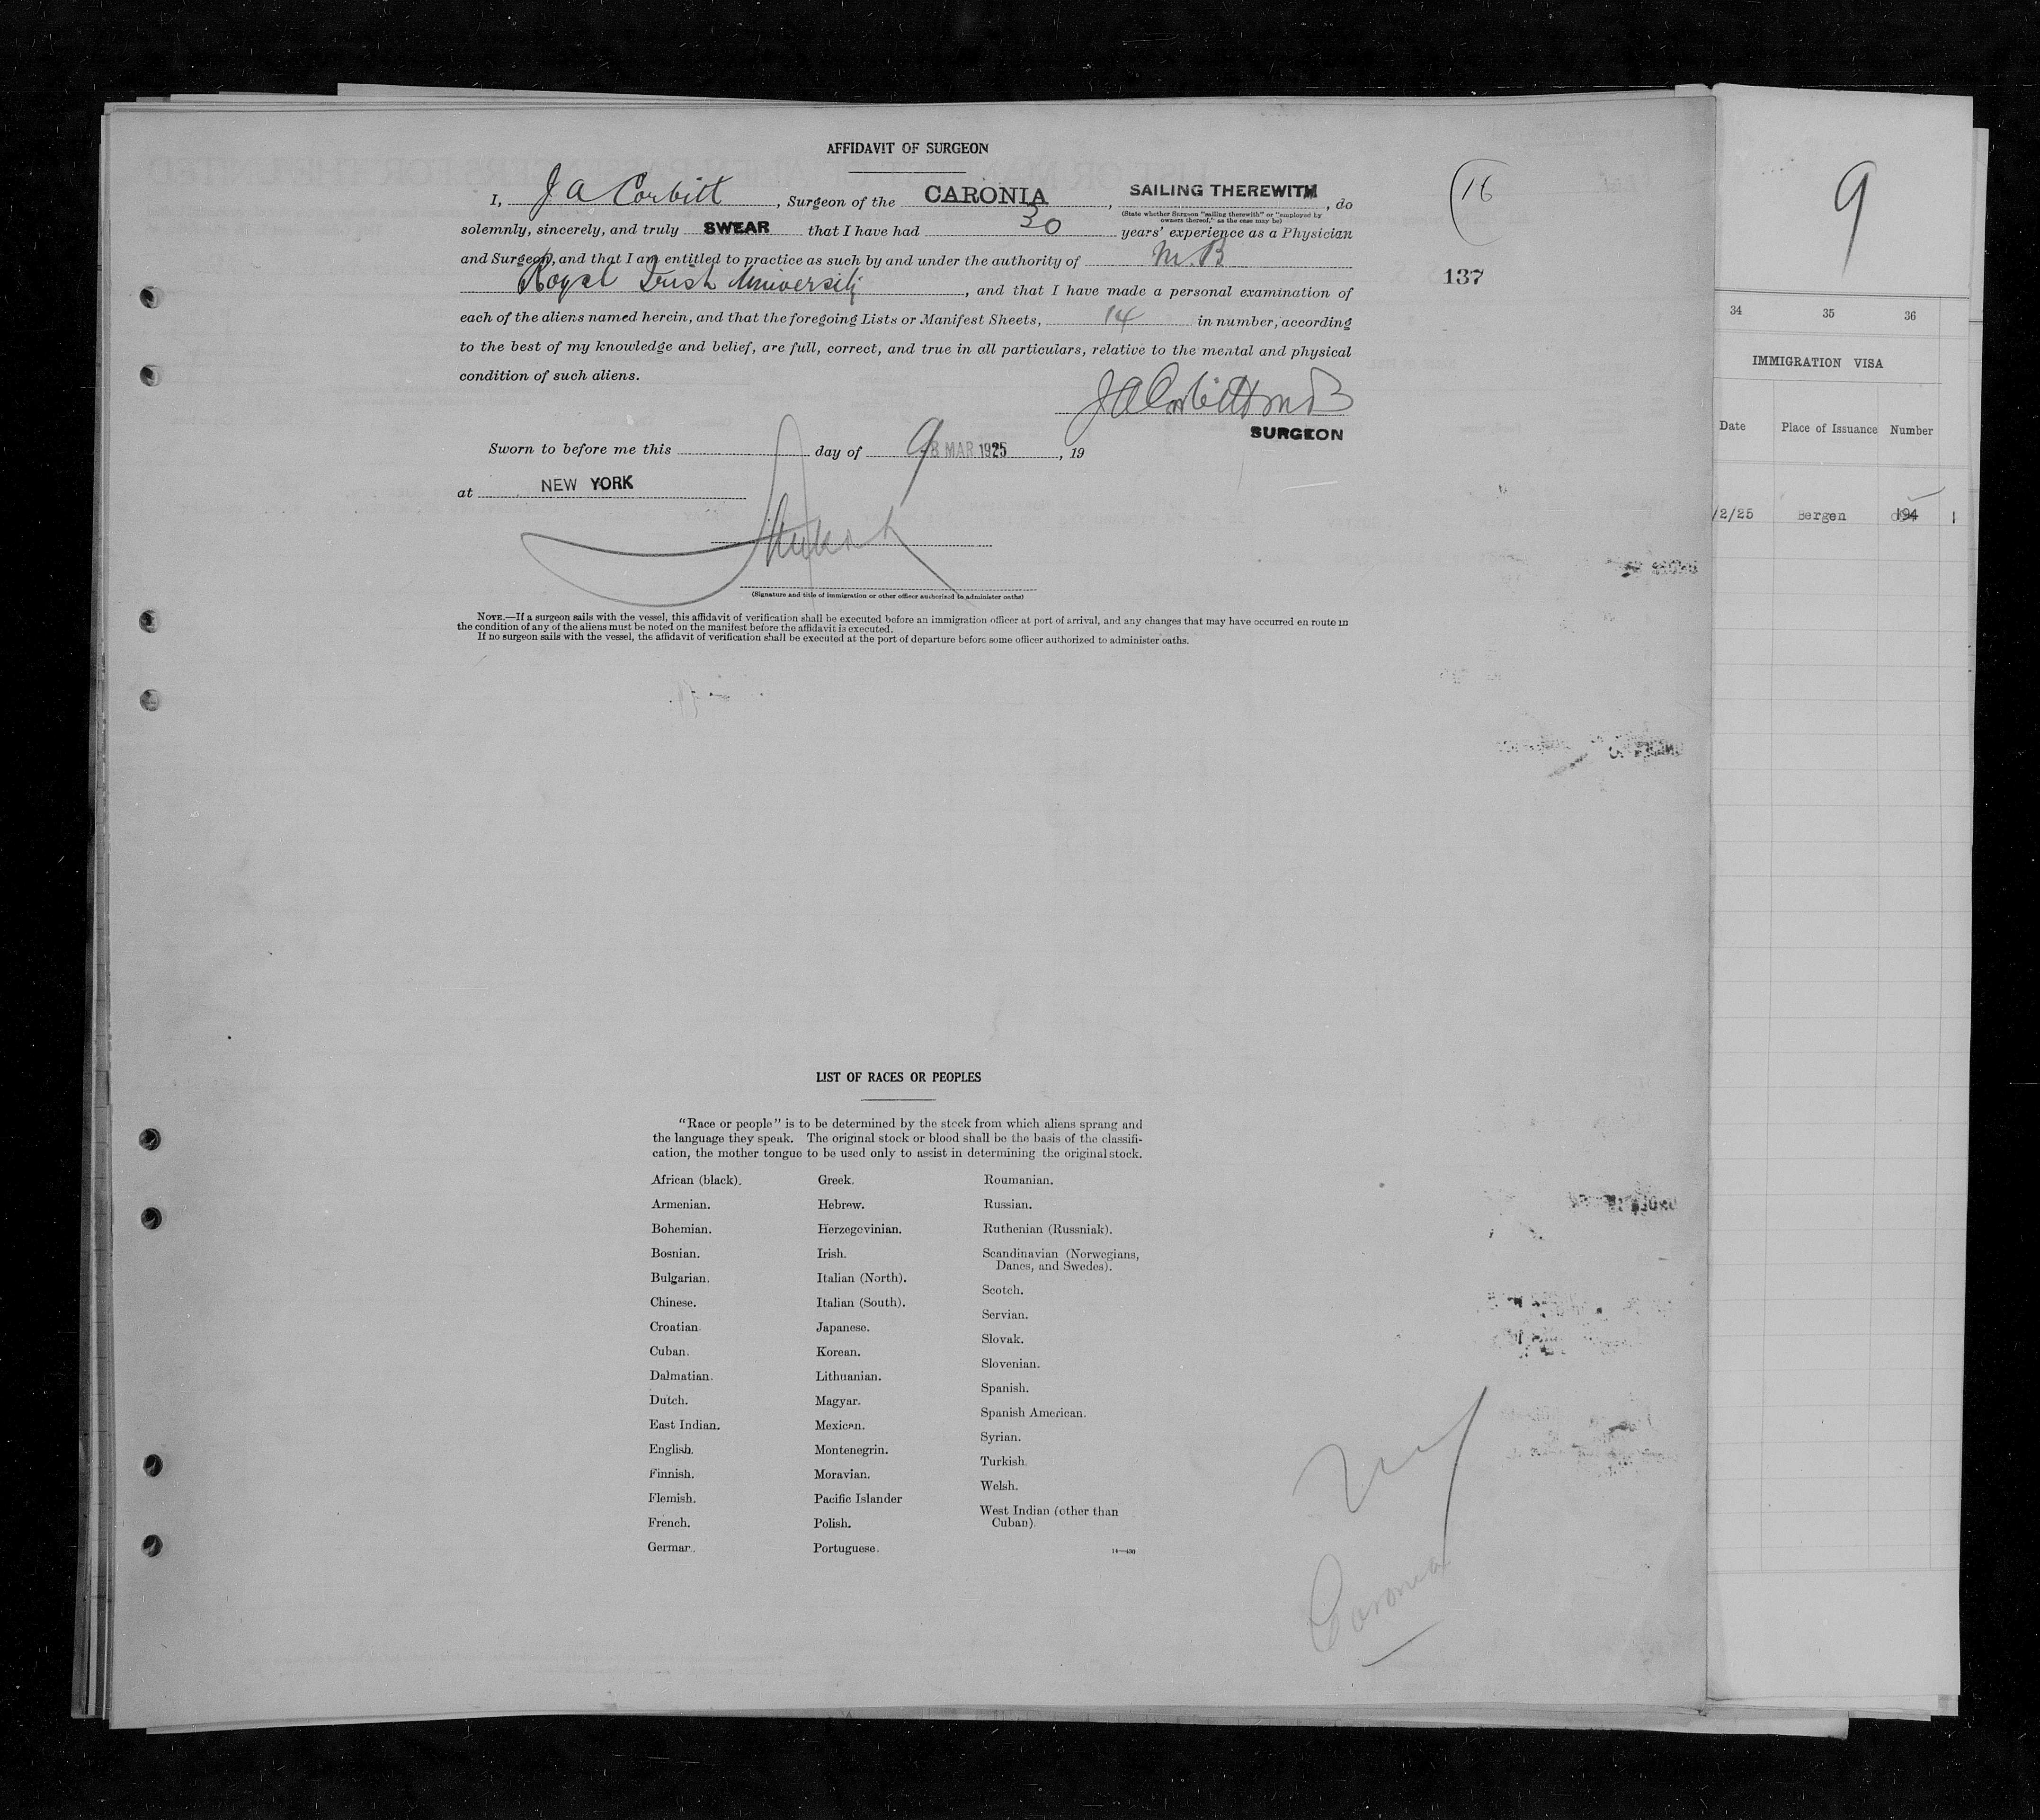 AFFIDAVIT OF SURGEON
I, J A Corbitt, Surgeon of the CARONIA, SAILING THEREWITH, do
(State whether Surgeon "sailing therewith" or "employed by
owners thereof," as the case may be)
solemnly, sincerely, and truly SWEAR that I have had 30 years' experience as a Physician
and Surgeon, and that I am entitled to practice as such by and under the authority of M.B
Royal Irish University, and that I have made a personal examination of
each of the aliens named herein, and that the foregoing Lists or Manifest Sheets, 14 in number, according
to the best of my knowledge and belief, are full, correct, and true in all particulars, relative to the mental and physical
condition of such aliens.
J A Corbitt M B
SURGEON
Sworn to before me this day of 9 8 MAR 1925, 19
at NEW YORK
(Signature and title of immigration or other officer authorized to administer oaths)
NOTE.—If a surgeon sails with the vessel, this affidavit of verification shall be executed before an immigration officer at port of arrival, and any changes that may have occurred en route in
the condition of any of the aliens must be noted on the manifest before the affidavit is executed.
If no surgeon sails with the vessel, the affidavit of verification shall be executed at the port of departure before some officer authorized to administer oaths.
16
137
LIST OF RACES OR PEOPLES
"Race or people" is to be determined by the stock from which aliens sprang and
the language they speak. The original stock or blood shall be the basis of the classifi-
cation, the mother tongue to be used only to assist in determining the original stock.
African (black).
Armenian.
Bohemian.
Bosnian.
Bulgarian.
Chinese.
Croatian.
Cuban.
Dalmatian.
Dutch.
East Indian.
English.
Finnish.
Flemish.
French.
German.
Greek.
Hebrew.
Herzegovinian.
Irish.
Italian (North).
Italian (South).
Japanese.
Korean.
Lithuanian.
Magyar.
Mexican.
Montenegrin.
Moravian.
Pacific Islander
Polish.
Portuguese.
Roumanian.
Russian.
Ruthenian (Russniak).
Scandinavian (Norwegians,
Danes, and Swedes).
Scotch.
Servian.
Slovak.
Slovenian.
Spanish.
Spanish American.
Syrian.
Turkish.
Welsh.
West Indian (other than
Cuban).
14—430
Caronia
9
34 35 36
IMMIGRATION VISA
Date Place of Issuance Number
/2/25 Bergen 194